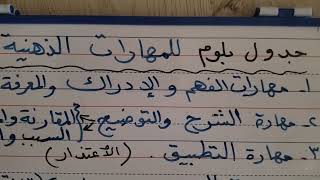 جدول بلوم للمهارات الذهنية
١- مهارات الفهم والإدراك والمعرفة
٢- مهارة الشرح والتوضيح { المقارنة
السبب
٣- مهارة التطبيق . (الأعتذار)